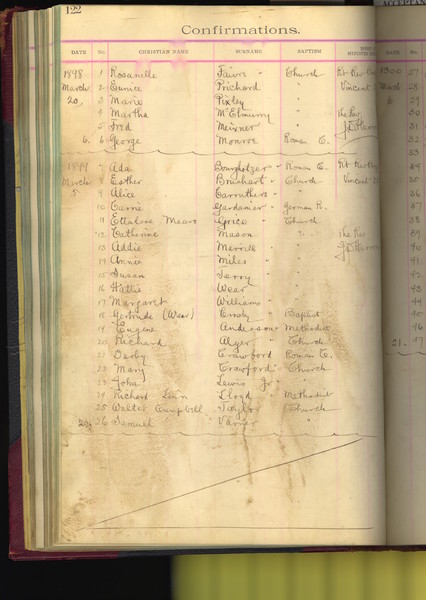 122
Confirmations.
DATE No. CHRISTIAN NAME SURNAME BAPTISM DATE No.
1898 1 Rosanelle Faivre " Church Rt. Rev. 1900 27
March 2 Eunice Prichard " Vincent March 28
20, 3 Marie Pixley " 6 29
4 Martha McElmurry " The Rev. 30
5 Fred Meixner " 31
6. 6 George Monroe Roman C. 32
33
1899 7 Ada " Roman C. Rt. Rev. 34
March 8 Esther " Church Vincent 35
5 9 Alice Carruthers " " 36
10 Carrie Gardanier " German R. 37
11 Ettalore Mears Grice " Church 38
12 Catherine Mason " The Rev. 39
13 Addie Merrill " " 40
14 Annie Miles " " 41
15 Susan Terry " " 42
16 Hattie Wear " " 43
17 Margaret Williams " " 44
18 Gertrude (Wear) Crosby Baptist 45
19 Eugene Anderson Methodist 46
20 Richard Alger " Church 21. 47
21 Derby Crawford Roman C.
22 Mary Crawford " Church
23 John Lewis Jr. " "
24 Richard Linn Lloyd Methodist
25 Walter Campbell Taylor Church
26 Samuel Varner "